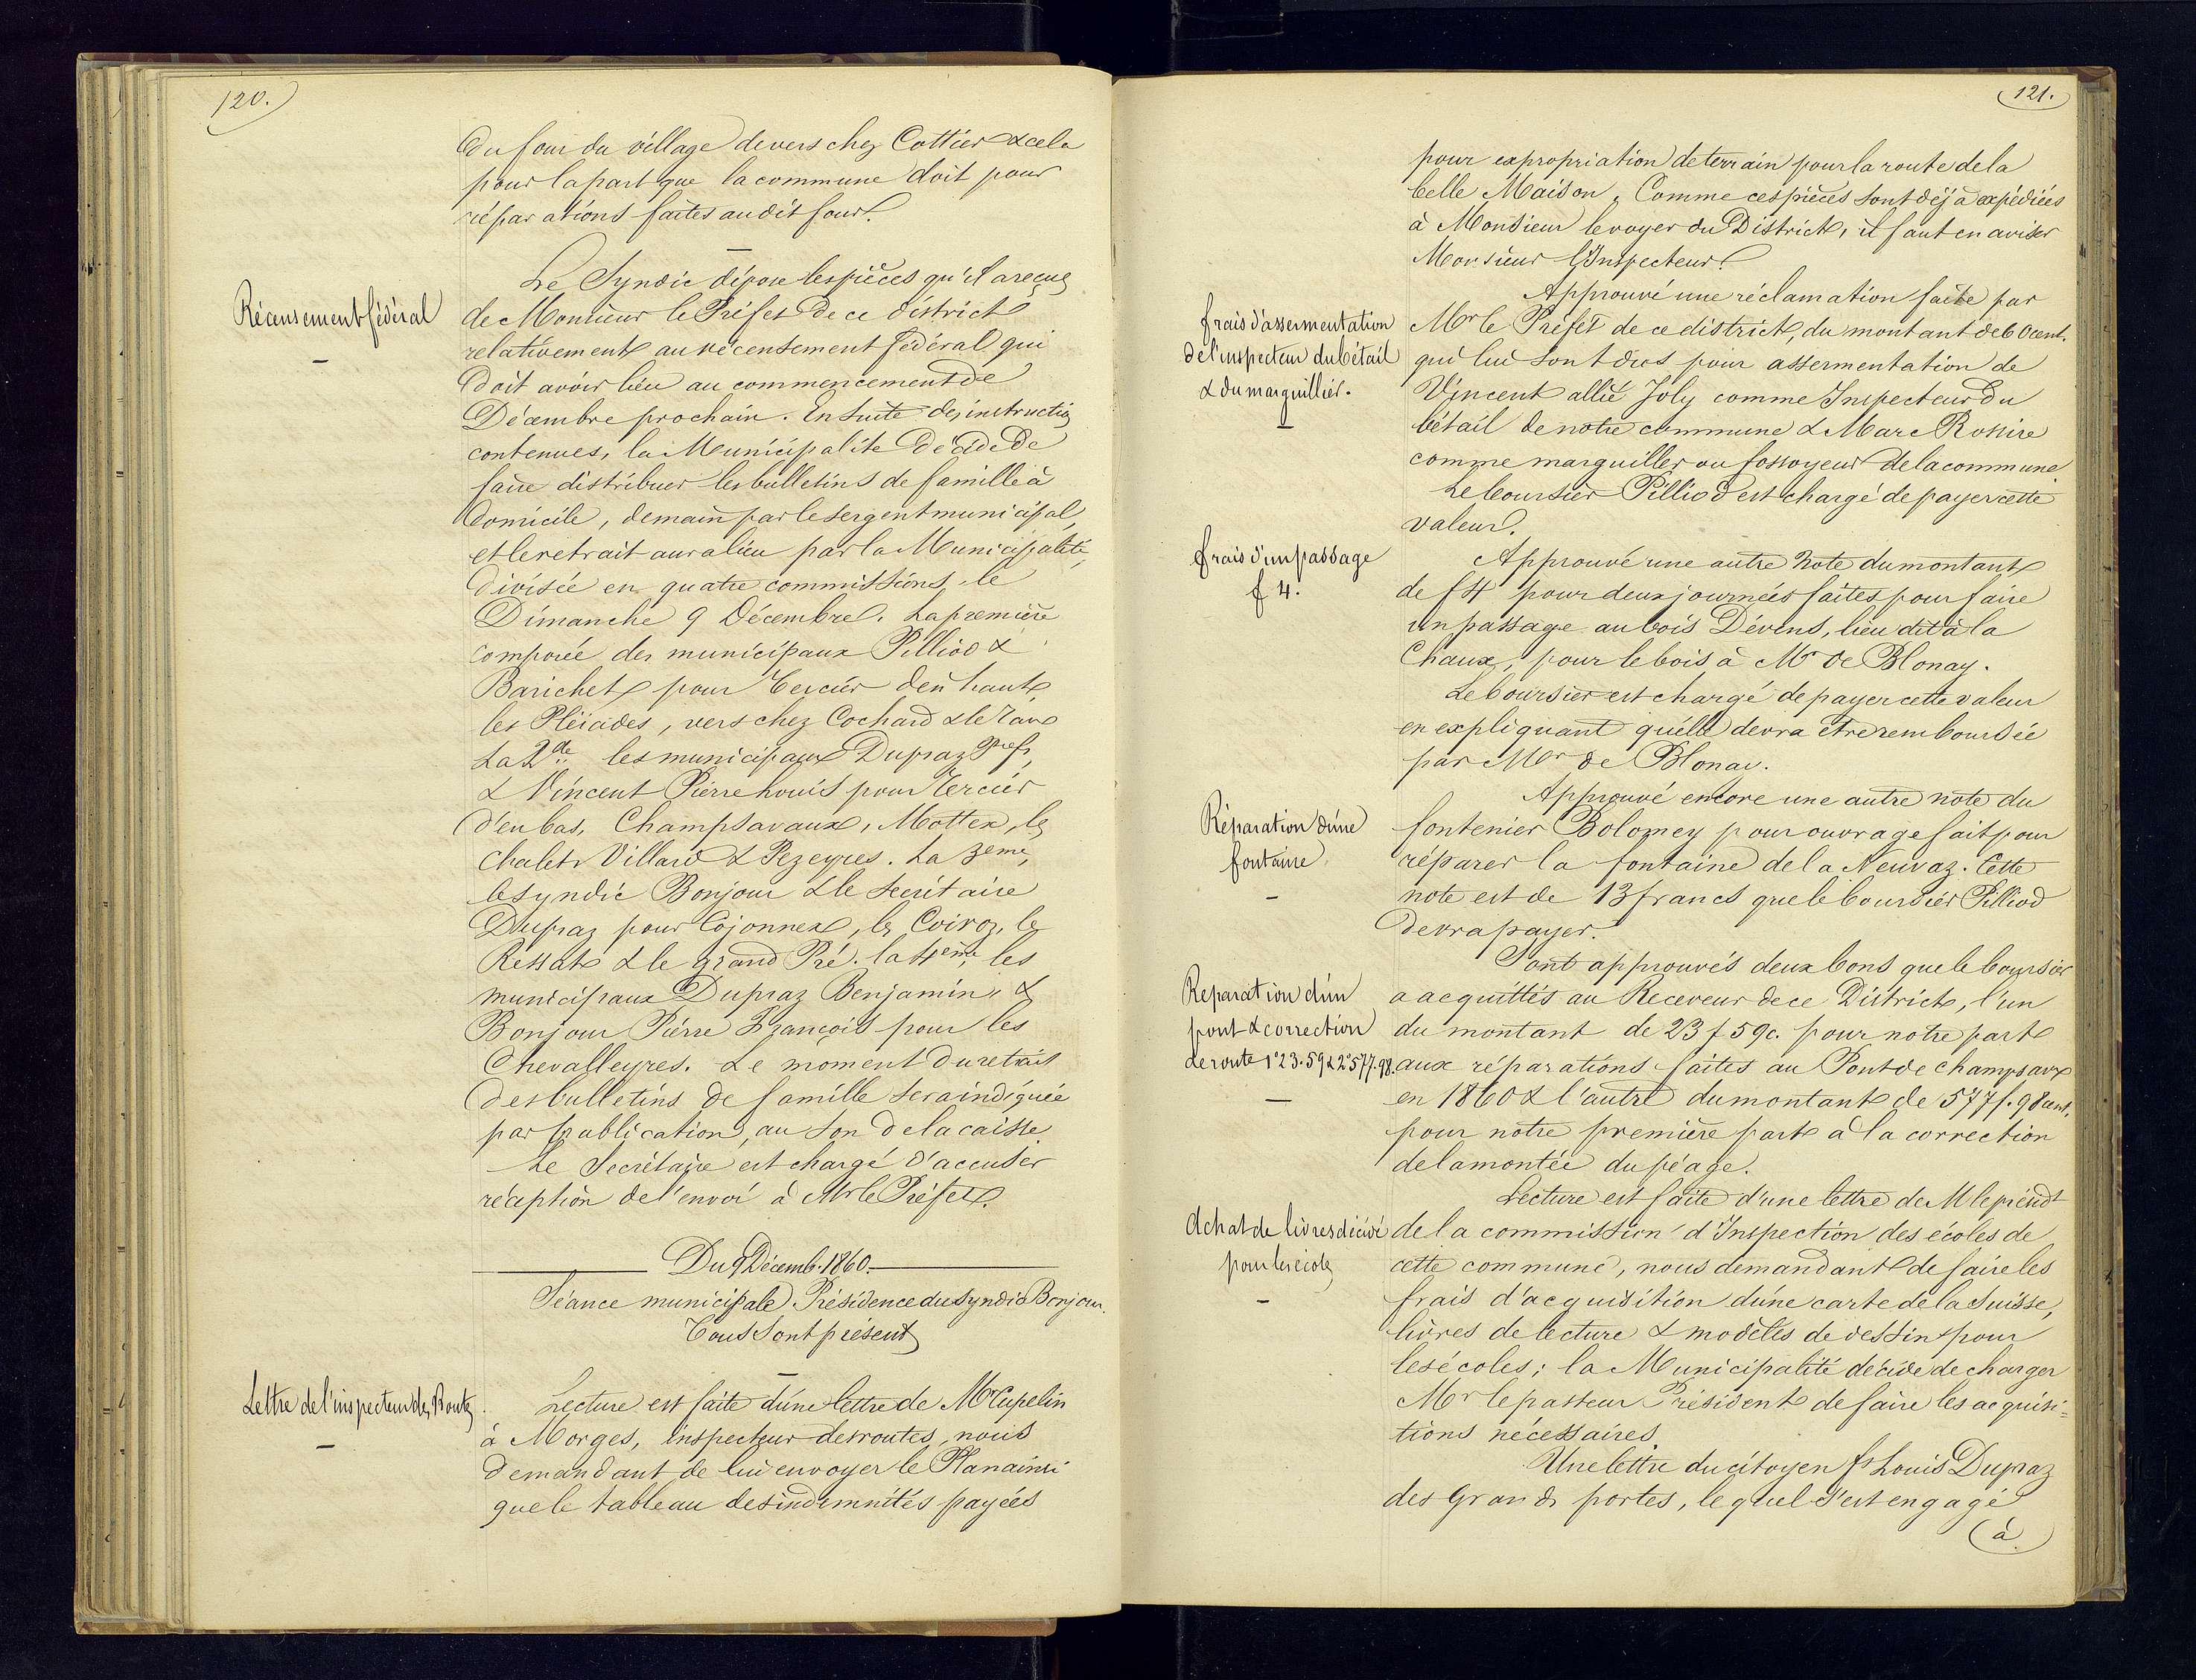 120.
du four du village devers chez Cottier & cela
pour la part que la commune doit pour
réparations faites au dit four.
Récensement fédéral
Le Syndic dépose les pièces qu'il a reçues
de Monsieur le Préfet de ce district
relativement au récensement fédéral qui
doit avoir lieu au commencement de
Décembre prochain. En suite des instructions
contenues, la Municipalité décide de
faire distribuer les bulletins de famille à
domicile, demain par le sergent municipal,
et le retrait aura lieu par la Municipalité,
divisée en quatre commissions, le
Dimanche 9 Décembre. La première
composée des municipaux Pilliod &
Barichet pour Tercier d'en haut
les Pléiades, vers chez Cochard & le
La 2de les municipaux Dupraz
& Vincent Pierre Louis pour Tercier
d'en bas, Champsavaux, Mottex, les
Chalets Villard & Pezeyres. La 3eme,
le syndic Bonjour & le secrétaire
Dupraz pour Cojonnex, les Coiroz, le
Ressat & le grand Pré. la 4eme, les
municipaux Dupraz Benjamin, &
Bonjour Pierre François pour les
Chevalleyres. Le moment du retrait
des bulletins de famille sera indiquée
par publication, au son de la caisse.
Le Secrétaire est chargé d'accuser
réception de l'envoi à Mr le Préfet.
Du 9 Décemb. 1860.
Séance municipale Présidence du syndic Bonjour.
Tous sont présents
Lettre de l'inspecteur des Routes.
Lecture est faite d'une lettre de Mr Cupelin
à Morges, inspecteur des routes, nous
demandant de lui envoyer le Plan ainsi
que le tableau des indemnités payées
121.
pour expropriation de terrain pour la route de la
belle Maison. Comme ces pièces sont déjà expédiées
à Monsieur le voyer du District, il faut en aviser
Monsieur l'Inspecteur.
frais d'assermentation
de l'inspecteur du bétail
& du marguillier.
Approuvé une réclamation faite par
Mr le Préfet de ce district, du montant de 60 cent.
qui lui sont dus pour assermentation de
Vincent allié Joly comme Inspecteur du
bétail de notre commune & Marc Rossire
comme marguiller ou fossoyeur de la commune
Le boursier Pilliod est chargé de payer cette
valeur.
frais d'un passage
f 4.
Approuvé une autre note du montant
de f 4 pour deux journées faites pour faire
un passage au bois Dévens, lieu dit à la
Chaux, pour le bois à Mr de Blonay.
Le boursier est chargé de payer cette valeur
en expliquant qu'elle devra être remboursée
par Mr de Blonay.
Réparation d'une
fontaine
Approuvé encore une autre note du
fontenier Bolomey pour ouvrage fait pour
réparer la fontaine de la Neuvaz. Cette
note est de 13 francs que le boursier Pilliod
devra payer.
Reparation d'un
pont & correction
de route 1° 23.59 & 2° 577.98.
Sont approuvés deux bons que le boursier
a acquittés au Receveur de ce District, l'un
du montant de 23 f 59 c. pour notre part
aux réparations faites au Pont de champsavx
en 1860 & l'autre du montant de 577 f. 98 cent.
pour notre première part à la correction
de la montée du péage.
Achat de livres divers
pour les écoles
Lecture est faite d'une lettre de M le présidt
de la commission d'Inspection des écoles de
cette commune, nous demandant de faire les
frais d'acquisition d'une carte de la Suisse,
livres de lecture & modèles de dessin pour
les écoles; la Municipalité décide de charger
Mr le pasteur Président de faire les acquisi=
tions nécessaires.
Une lettre du citoyen fs Louis Dupraz
des Grands portes, lequel s'est engagé
à